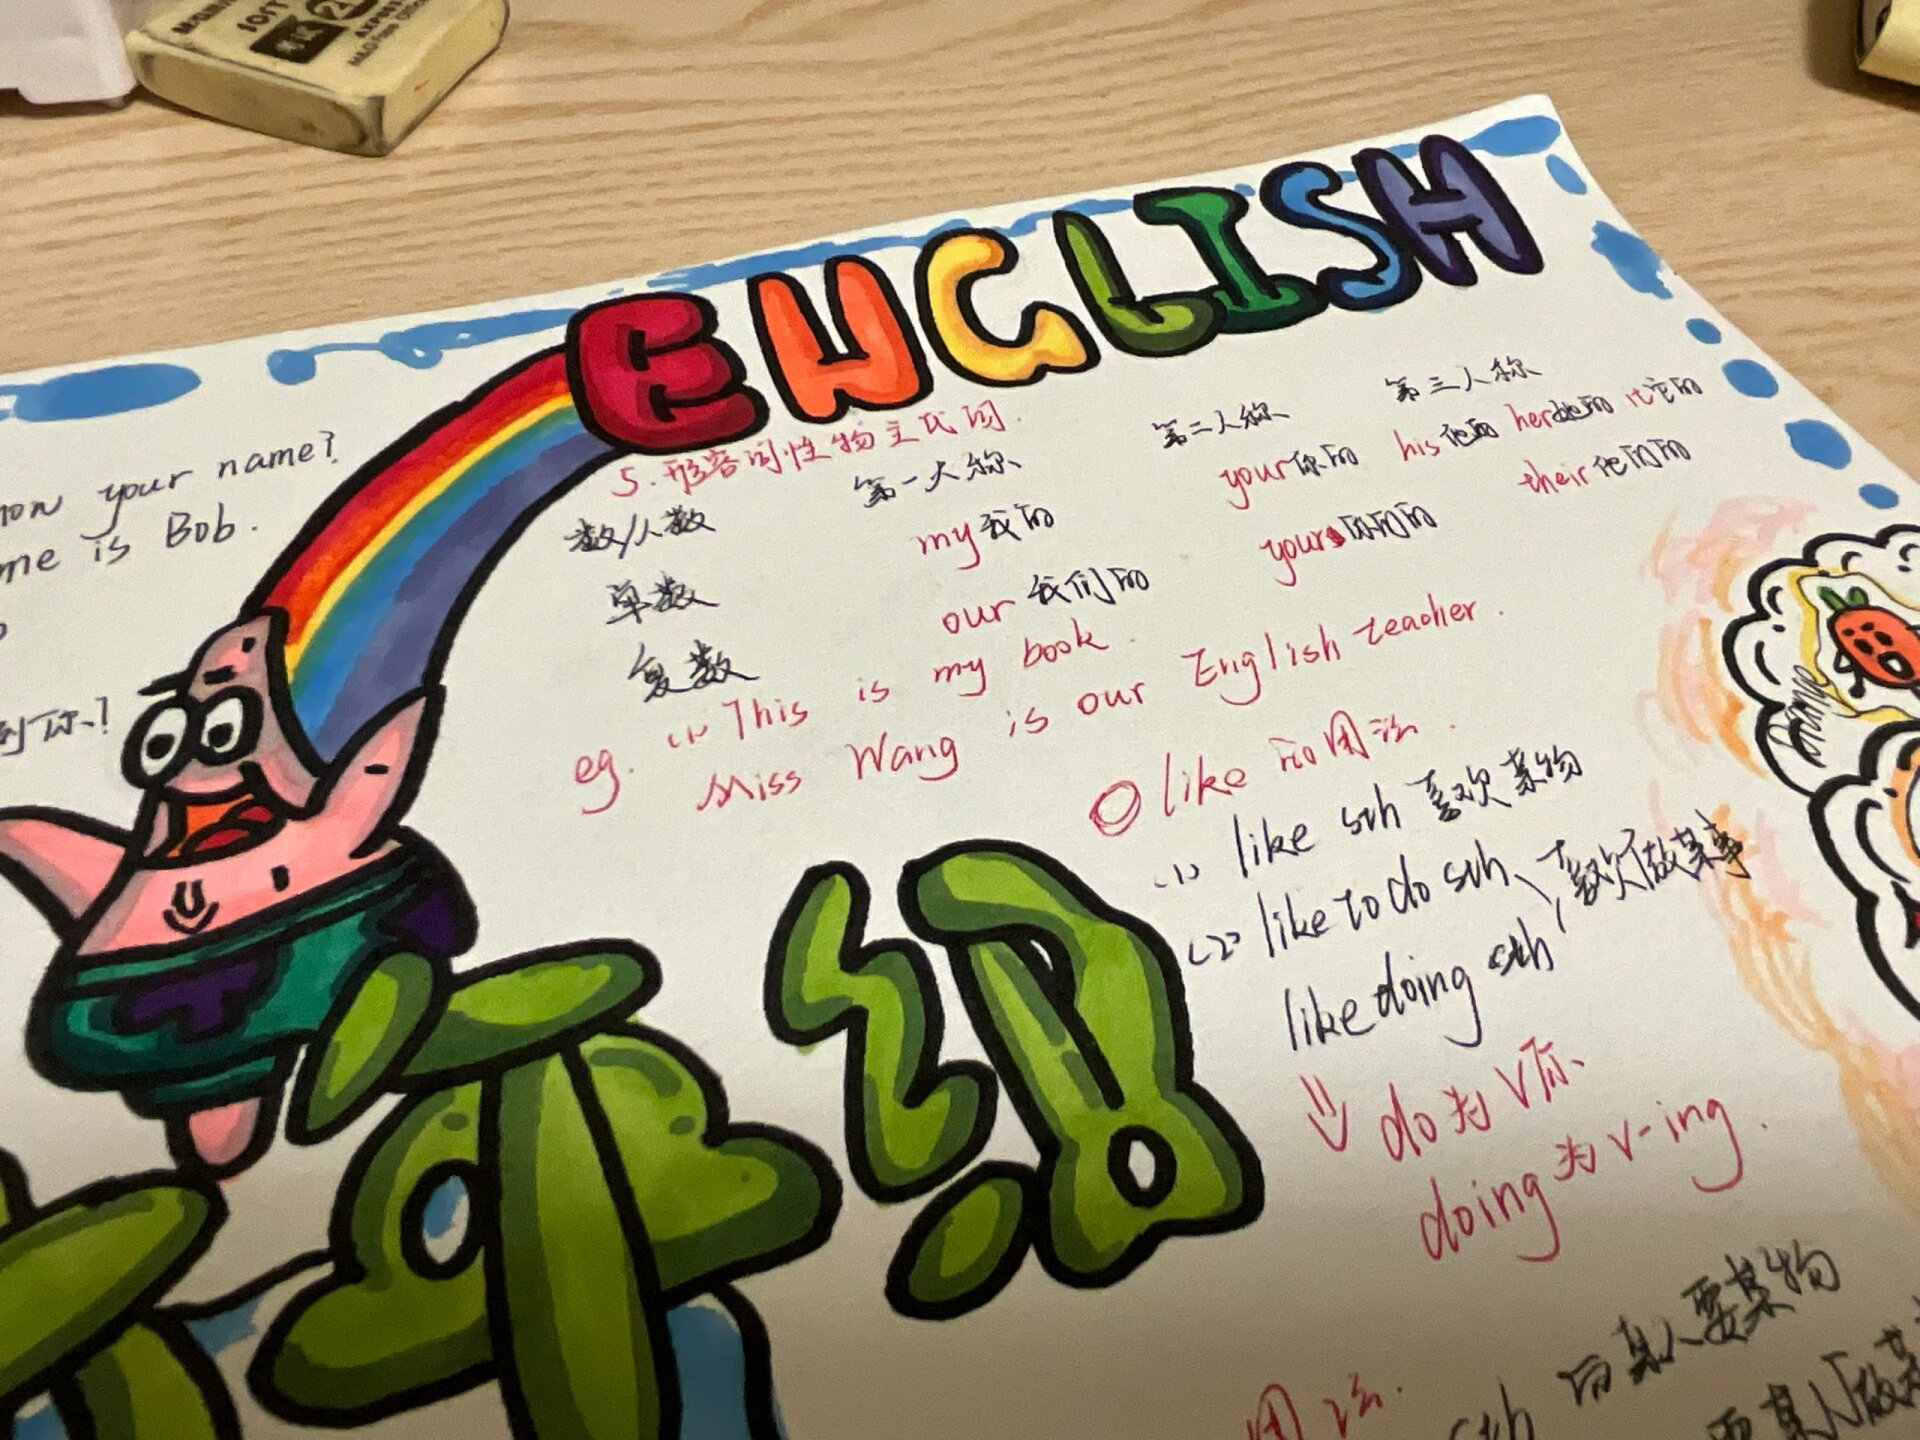 SOFT
ENGLISH
your name?
me is Bob.
到你?
5.形容词性物主代词.
数/人数 第一人称 第二人称 第三人称
单数 my我的 your你的 his他的 her她的 it它的
复数 our我们的 your 你们的 their他们的
eg. (1) This is my book.
Miss Wang is our English teacher.
like 的用法.
(1) like sth 喜欢某物
(2) like to do sth、喜欢做某事
like doing sth
do为V原、
doing为V-ing.
Orange
用法.
sth 向某人要某物